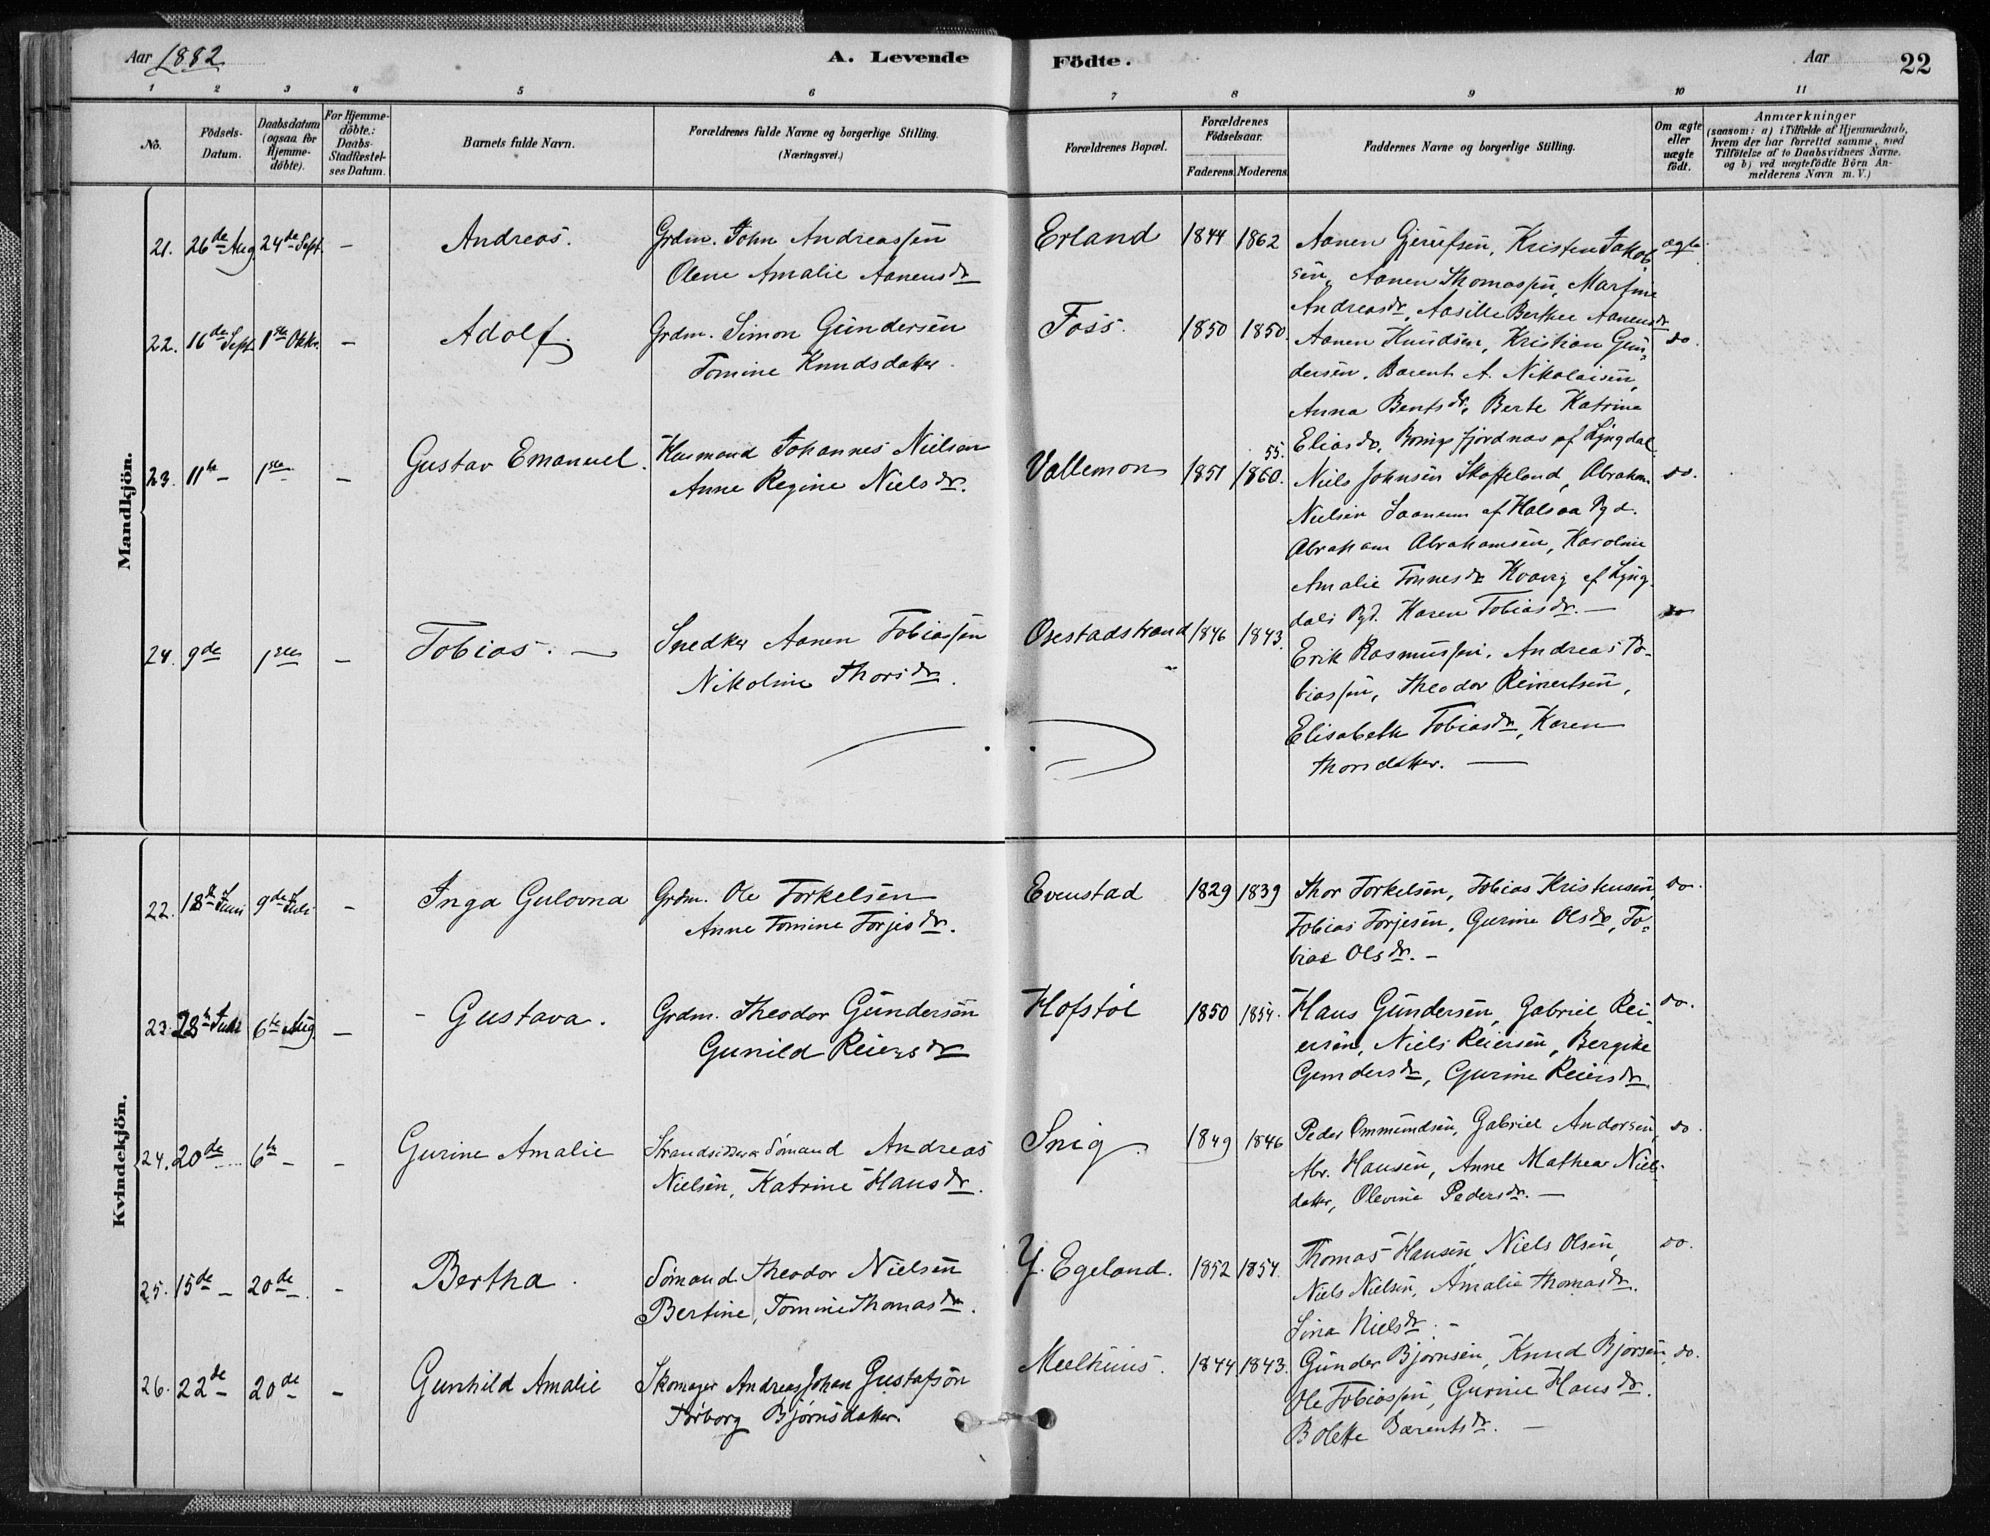 Aar 1882
A. Levende
Födte.
Aar
22
1 2 3 4 5 6 7 8 9 10 11
No.
Födsels-
Datum.
Daabsdatum
(ogsaa for
Hjemme-
döbte).
For Hjemme-
döbte.:
Daabs-
Stadfæstel-
ses Datum.
Barnets fulde Navn.
Forældrenes fulde Navne og borgerlige Stilling.
(Næringsvei.)
Forældrenes Bopæl.
Forældrenes
Födselsaar.
Faderens. Moderens.
Faddernes Navne og borgerlige Stilling.
Om ægte
eller
uægte
födt.
Anmærkninger
(saasom: a) i Tilfælde af Hjemmedaab,
hvem der har forrettet samme, med
Tilföielse af to Daabsvidners Navne.
og b) ved uægtefödte Börn An-
melderens Navn m. V.)
Mandkjön.
21. 26de Aug 24de Sept. – Andreas.
Grdm. John Andreassen
Olene Amalie Aanensdr
Erland 1844 1862
Aanen Gjerufsen, Kristen Jakob
sen, Aanen Thomassen, Martine
Andreasdr, Aasille Berthee Aanensdr
ægte
22. 16de Sept 1ste Oktr. – Adolf.
Grdm. Simon Gundersen
Tomine Knudsdatter.
Foss. 1850 1850.
Aanen Knudsen, Kristian Gun-
dersen, Barent A. Nikolaisen,
Anna Bentsdr, Berte Katrine
Eliasdr, fjordnæs af Lyngdal
do.
23. 11te – 1ste – Gustav Emanuel.
Husmand Johannes Nielsen
Anne Regine Nielsdr.
Vallemon 1851 55. 1860.
Niels Johnsen Skofteland, Abraham
Nielsen Saanum af Halsaa Pgd.
Abraham Abrahamsen, Karoline
Amalie Tonnesdr Kvavig af Lyng-
dals Pgd. Karen Tobiasdr. –
do.
24. 9de 1ste – Tobias. –
Snedker Aanen Tobiassen
Nikoline Thorsdr.
Osestadstrand 1846 1843.
Erik Rasmussen, Andreas To-
biassen, Theodor Reinertsen,
Elisabeth Tobiasdr, Karen
Thorsdatter. –
do
Kvindekjön.
22. 18de Juni 9de Juli – Inga Gulovna
Grdm. Ole Torkelsen
Anne Tomine Torjesdr.
Evenstad 1829 1839
Thor Torkelsen, Tobias Kristensen,
Tobias Torjesen, Gurine Olsdr, To-
biae Olsdr. –
do.
23. 28de Juli 6te Aug. – Gustava.
Grdm. Theodor Gundersen
Gunild Reiersdr
Hofstöl 1850 1854.
Hans Gundersen, Gabriel Rei
ersen, Niels Reiersen, Bergite
Gundersdr, Gurine Reiersdr
do.
24. 20de 6te – – Gurine Amalie
Strandsidder & Sömand Andreas
Nielsen, Katrine Hansdr.
Snig. 1849 1846
Peder Ommundsen, Gabriel Andersen,
Abr. Hansen, Anne Mathea Niels-
datter, Olevine Pedersdr. –
do.
25. 15de – 20de – Bertha.
Sömand Theodor Nielsen
Bertine, Tomine Thomasdr.
Y. Egeland. 1852 1854.
Thomas Hansen, Niels Olsen,
Niels Nielsen, Amalie Thomasdr.
Sina Nielsdr. –
do.
26. 22de 20de – Gunhild Amalie
Skomager Andreas Johan Gustafsön
Törborg Björnsdatter.
Meelhuus. 1844 1843.
Gunder Björnsen, Knud Bjorsen,
Ole Tobiassen, Gurine Hansdr.
Bolette Barentsdr. –
do.